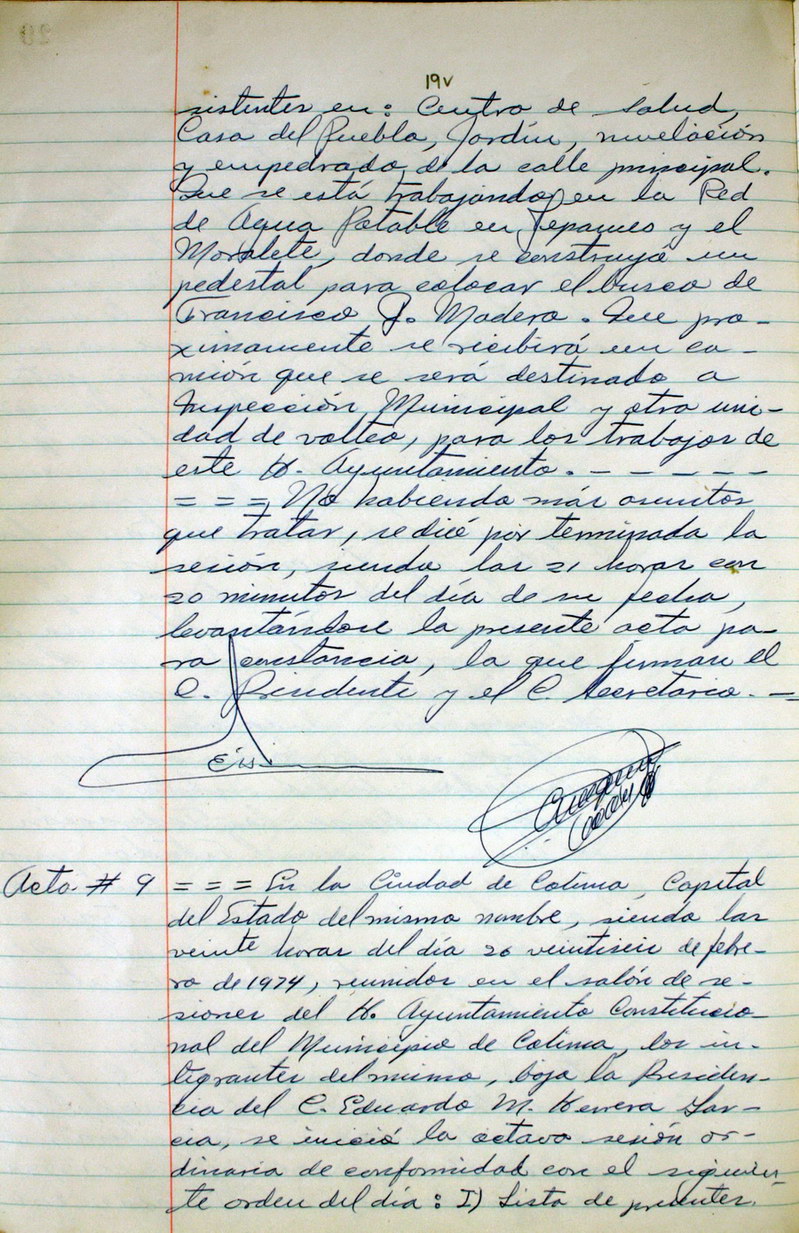 19v
sistentes en: Centro de Salud,
Casa del Pueblo, Jardín, nivelación
y empedrado de la calle principal.
Que se está trabajando en la Red
de Agua Potable en Tepames y el
Moralete, donde se construyó un
pedestal para colocar el busco de
Francisco I. Madero. Que pro-
ximamente se recibirá un ca-
mión que se será destinado a
Inspección Municipal y otra uni-
dad de volteo, para los trabajos de
este H. Ayuntamiento. - - - - - -
= = = No habiendo más asuntos
que tratar, se dió por terminada la
sesión, siendo las 21 horas con
20 minutos del día de su fecha,
levantándose la presente acta pa-
ra constancia, la que firman el
C. Presidente y el C. Secretario. -
Acta # 9 = = = En la Ciudad de Colima, Capital
del Estado del mismo nombre, siendo las
veinte horas del día 26 veintiseis de febre-
ro de 1974, reunidos en el salón de se-
siones del H. Ayuntamiento Constitucio-
nal del Municipio de Colima, los in-
tegrantes del mismo, bajo la Presiden-
cia del C. Eduardo M. Herrera Gar-
cia, se inició la octava sesión or-
dinaria de conformidad con el siguien-
te orden del día: I) Lista de presentes.